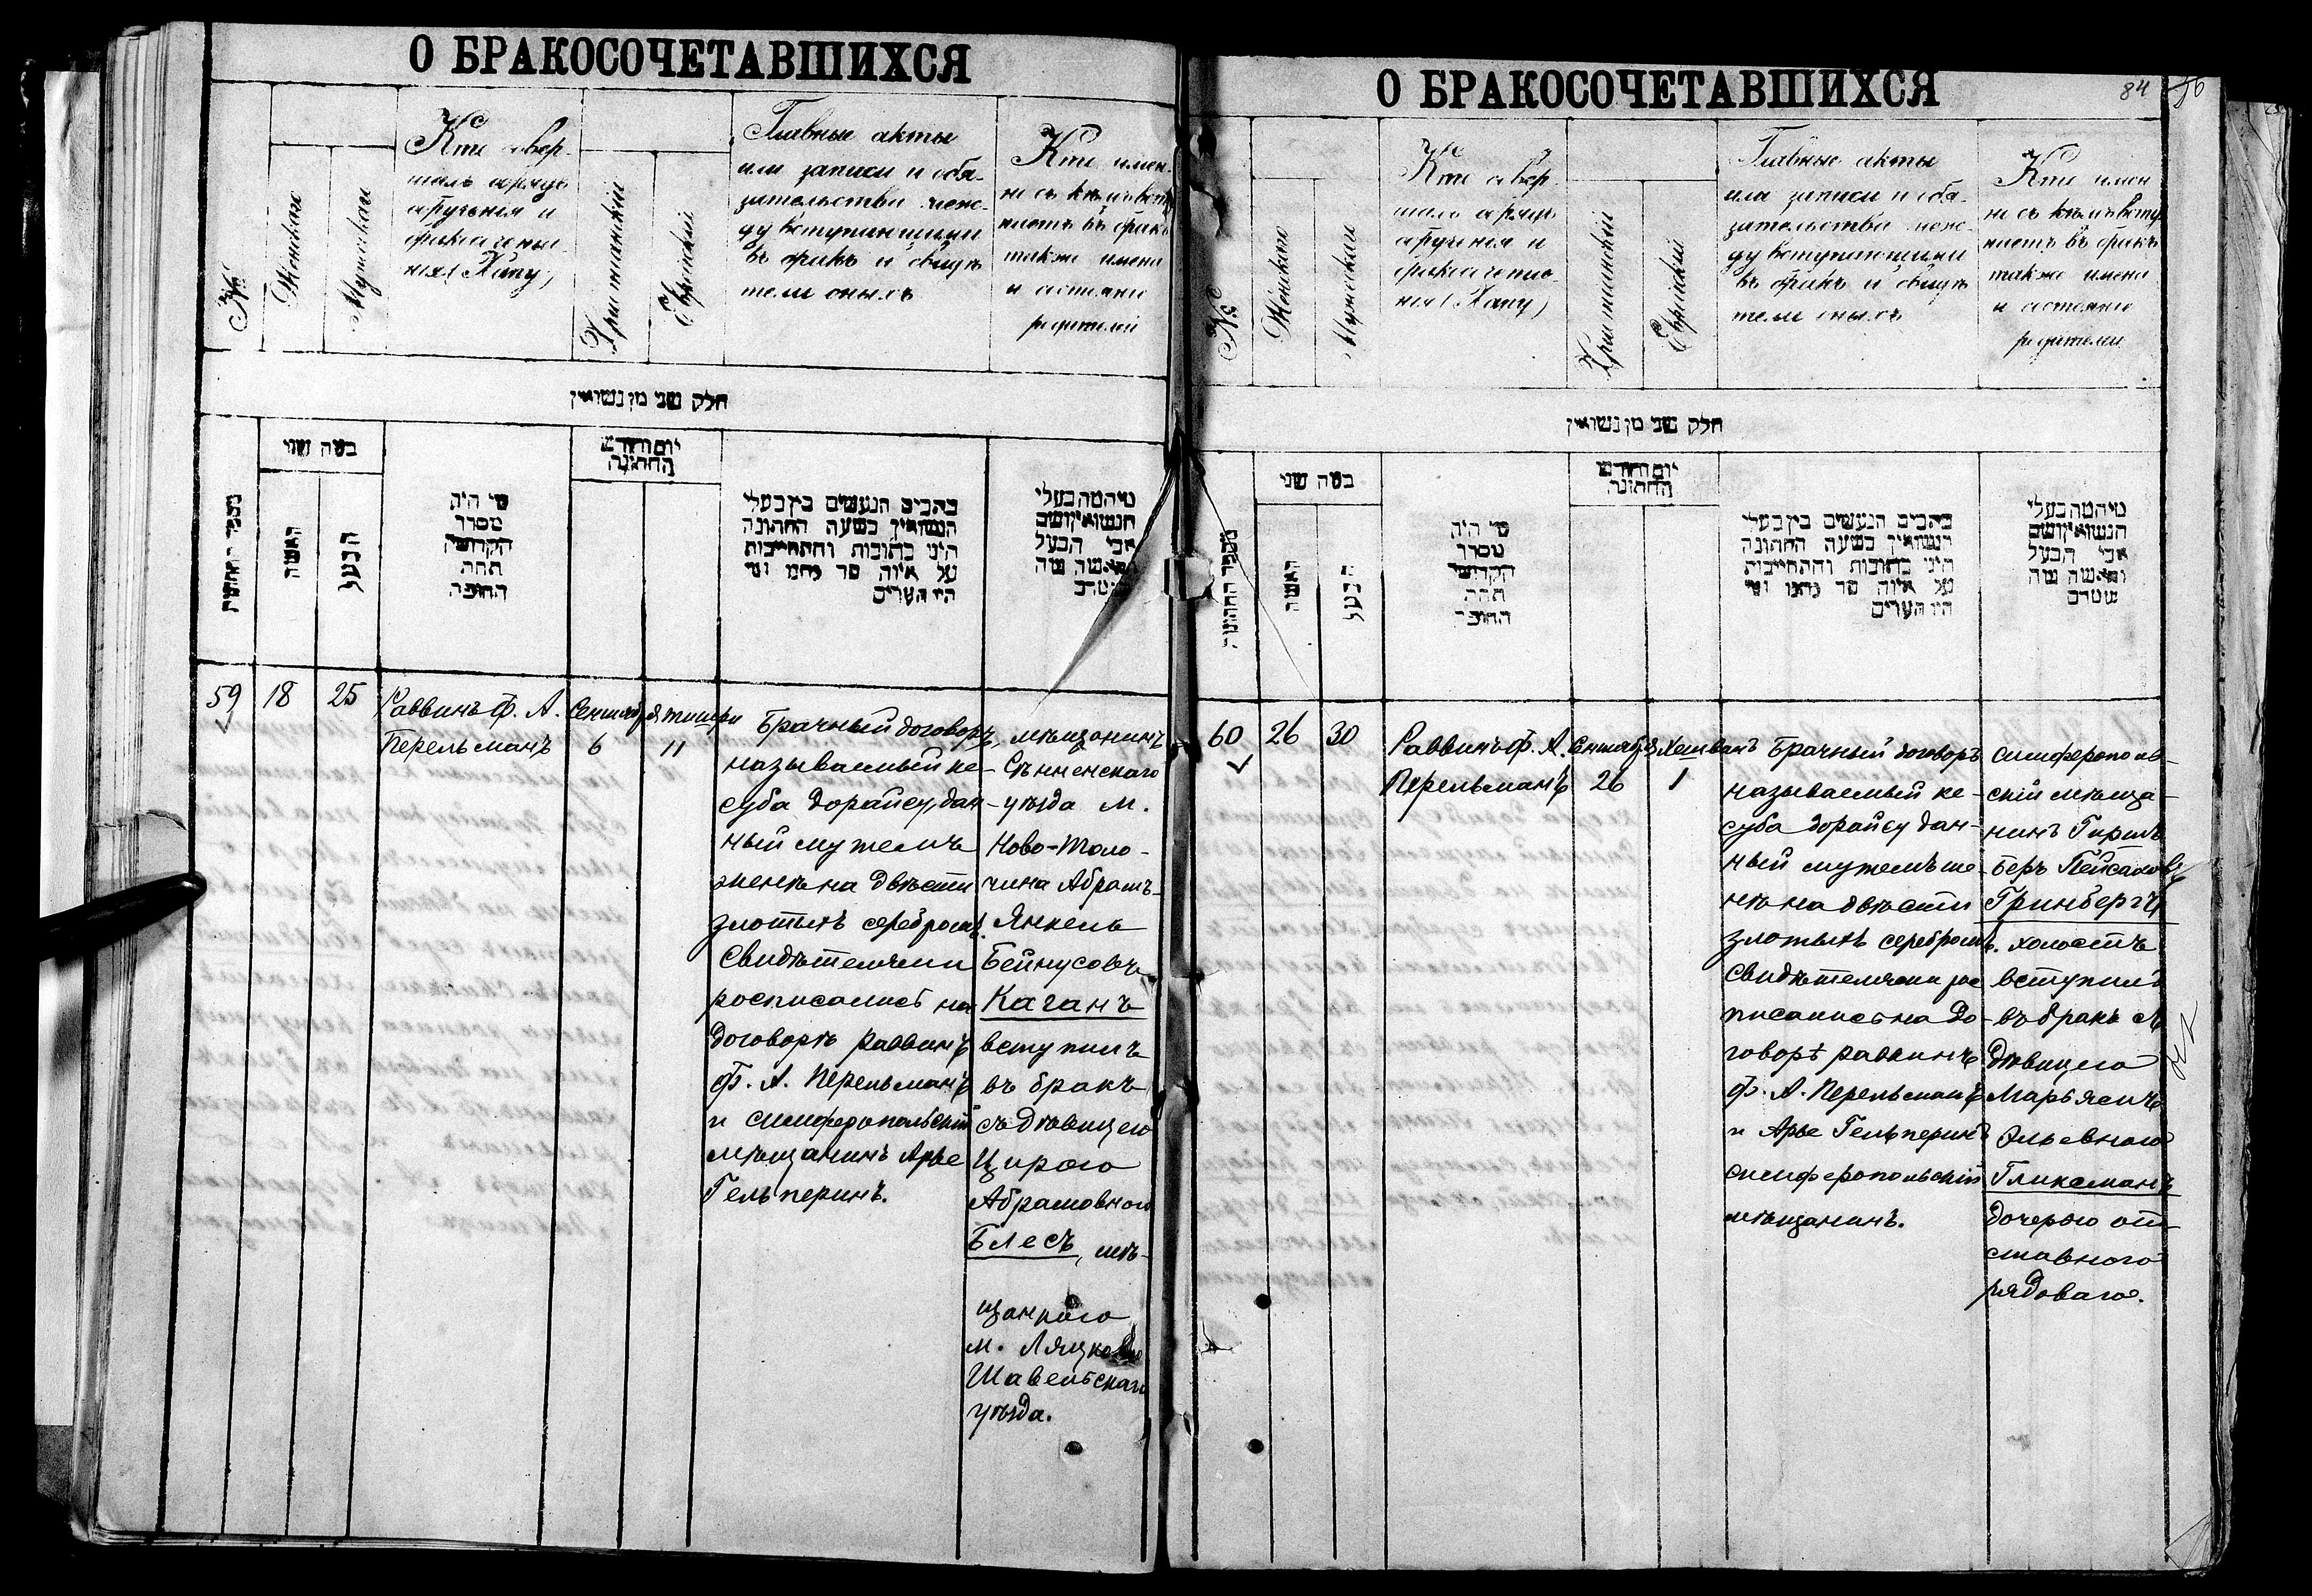 О БРАКОСОЧЕТАВШИХСЯ
№
Женская
Мужская
Кто совер-
шалъ обрядъ
обрученія и
бракосочета-
нія (Хипу)
Христіанскій
Еврейскій
Главные акты
или записи и обя-
зательства меж-
ду вступившими
въ бракъ и свидѣ-
тели оныхъ
Кто имен-
но съ кѣмъ всту
паетъ въ бракъ
также имена
и состояніе
родителей
חלק שני מן נשואין
מספר החתונות
כמה שני
האשה
הבעל
מי היה
מסדר
הקדושין
תחת
החופה
יום וחודש
החתונה
כתבים הנעשים בין בעלי
הנשואין בשעת החתונה
היינו כתובות והתחייבות
על איזה סך נתנו ומי
היו העדים
מי המה בעלי
הנשואין ושם
אבי הבעל
והאשה מה
59
18
25
Раввинъ Ф. А.
Перельманъ
Сентября
6
Тишри
11
Брачный договоръ,
называемый ке-
суба дорайсу, дан-
ный мужемъ
женѣ на двѣсти
злотыхъ серебромъ.
Свидѣтелями
росписались на
договорѣ раввинъ
Ф. А. Перельманъ
и симферопольскій
мѣщанинъ Арье
Гельперинъ.
мѣщанинъ
Сѣнненскаго
уѣзда м.
Ново-Толо-
чина Абрамъ-
Янкель
Бейнусовъ
Каганъ
вступилъ
въ бракъ
съ дѣвицею
Цирою
Абрамовною
Блесъ, мѣ-
щанкою
м. Ляцково
Шавельскаго
уѣзда.
О БРАКОСОЧЕТАВШИХСЯ
84
56
№
Женская
Мужская
Кто совер-
шалъ обрядъ
обрученія и
бракосочета-
нія (Хипу)
Христіанскій
Еврейскій
Главные акты
или записи и обя-
зательства меж-
ду вступившими
въ бракъ и свидѣ-
тели оныхъ
Кто имен
но съ кѣмъ всту
паетъ въ бракъ
также имена
и состояніе
родителей
חלק שני מן נשואין
מספר החתונות
כמה שני
האשה
הבעל
מי היה
מסדר
הקדושין
תחת
החופה
יום וחודש
החתונה
כתבים הנעשים בין בעלי
הנשואין בשעת החתונה
היינו כתובות והתחייבות
על איזה סך נתנו ומי
היו העדים
מי המה בעלי
הנשואין ושם
אבי הבעל
והאשה מה
שמם
60
26
30
Раввинъ Ф. А.
Перельманъ
Сентября
26
Хешванъ
1
Брачный договоръ
называемый ке-
суба дорайсу дан-
ный мужемъ же-
нѣ на двѣсти
злотыхъ серебромъ.
Свидѣтелями рос
писались на до-
говорѣ раввинъ
Ф. А. Перельманъ
и Арье Гельперинъ
симферопольскій
мѣщанинъ.
симферополь-
скій мѣща-
нинъ Гиршъ
Беръ Пейсаховъ
Гринбергъ
холостъ
вступилъ
въ бракъ съ
дѣвицею
Марьясъ
Эльевною
Гликманъ
дочерью от-
ставного
рядоваго.